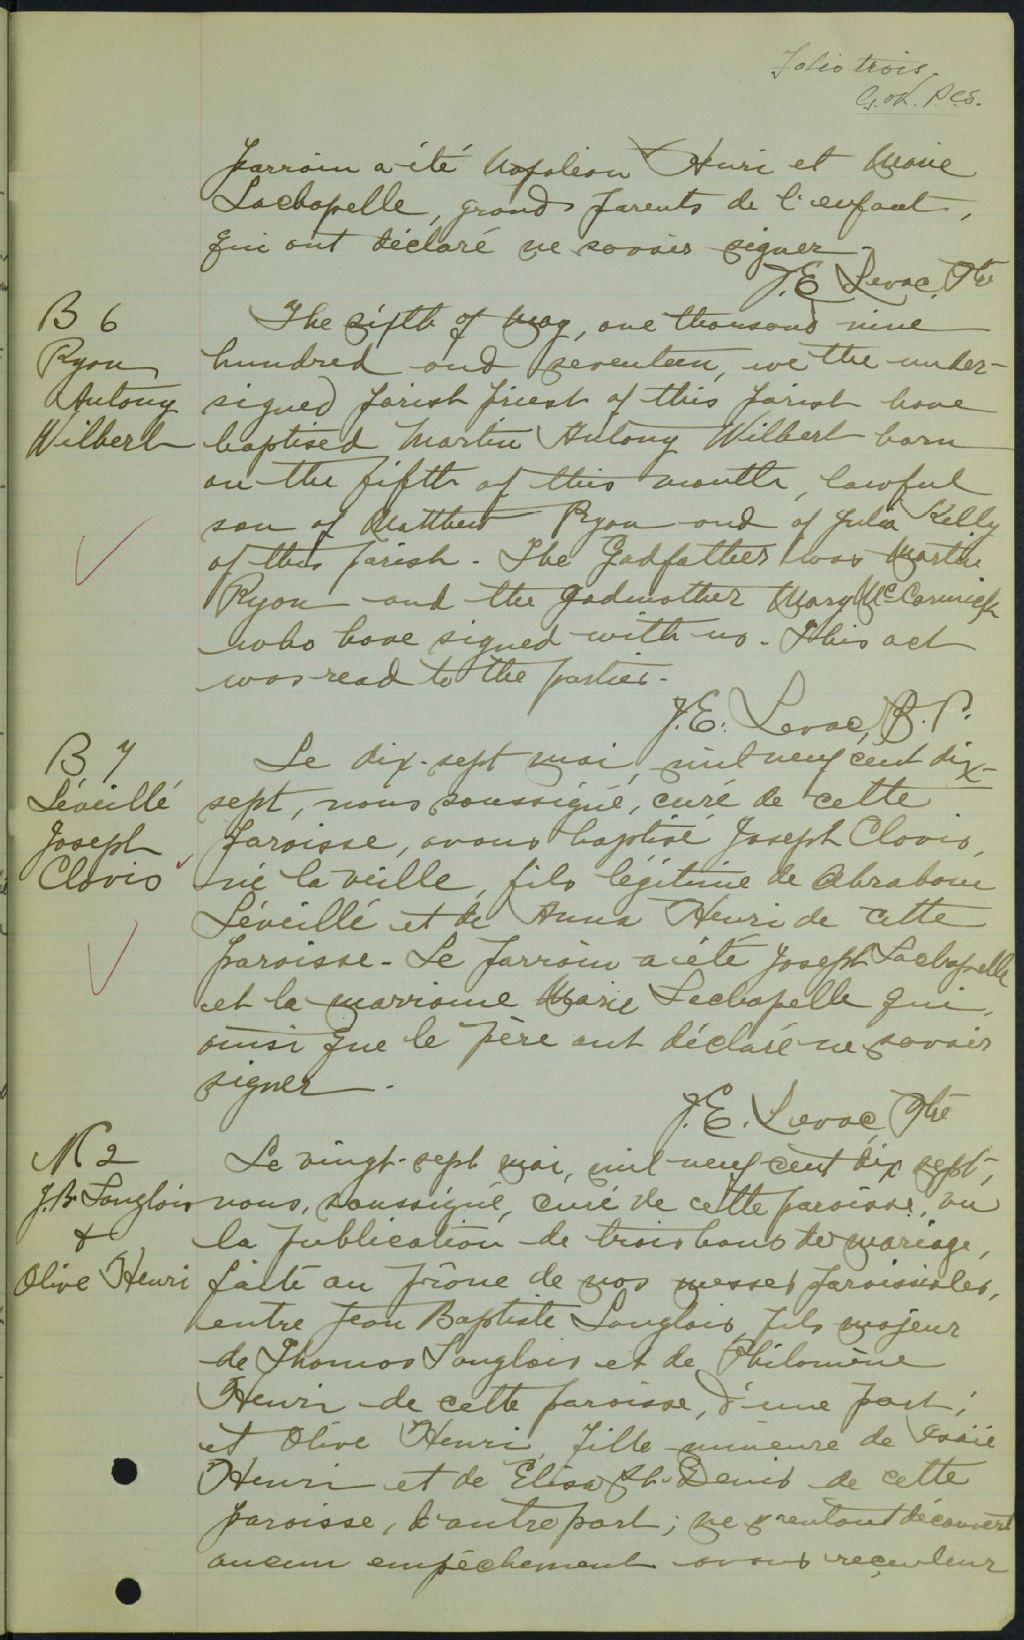 Folio trois.
parrain a été Napoléon Henri et Marie
Lachapelle, grands parents de l'enfant,
qui ont déclaré ne savoir signer.
J.E. Levac, Ptre
B 6
Ryan
Antony
Wilbert
The sixth of May, one thousand nine
hundred and seventeen, we the under-
signed parish priest of this parish have
baptised Martin Antony Wilbert born
on the fifth of this month, lawful
son of Matthew Ryan and of Julia Kelly
of this parish. The Godfather was Martin
Ryan and the godmother Mary McCormick
who have signed with us. This act
was read to the parties.
J.E. Levac, P.P.
B 7
Léveillé
Joseph
Clovis
Le dix-sept mai, mil neuf cent dix-
sept, nous soussigné, curé de cette
paroisse, avons baptisé Joseph Clovis,
né la veille, fils légitime de Abraham
Léveillé et de Anna Henri de cette
paroisse. Le parrain a été Joseph Lachapelle
et la marraine Marie Lachapelle qui,
ainsi que le père ont déclaré ne savoir
signer.
J.E. Levac, Ptre
M 2
J.B. Langlois
&
Olive Henri
Le vingt-sept mai, mil neuf cent dix sept,
nous, soussigné, curé de cette paroisse, vu
la publication de trois bans de mariage,
faite au prône de nos messes paroissiales,
entre Jean Baptiste Langlois, fils majeur
de Thomas Langlois et de Philomène
Henri de cette paroisse, d'une part;
et Olive Henri, fille mineure de Isaïe
Henri et de Elisa St-Denis de cette
paroisse, d'autre part; ne s'étant découvert
aucun empêchement avons reçu leur